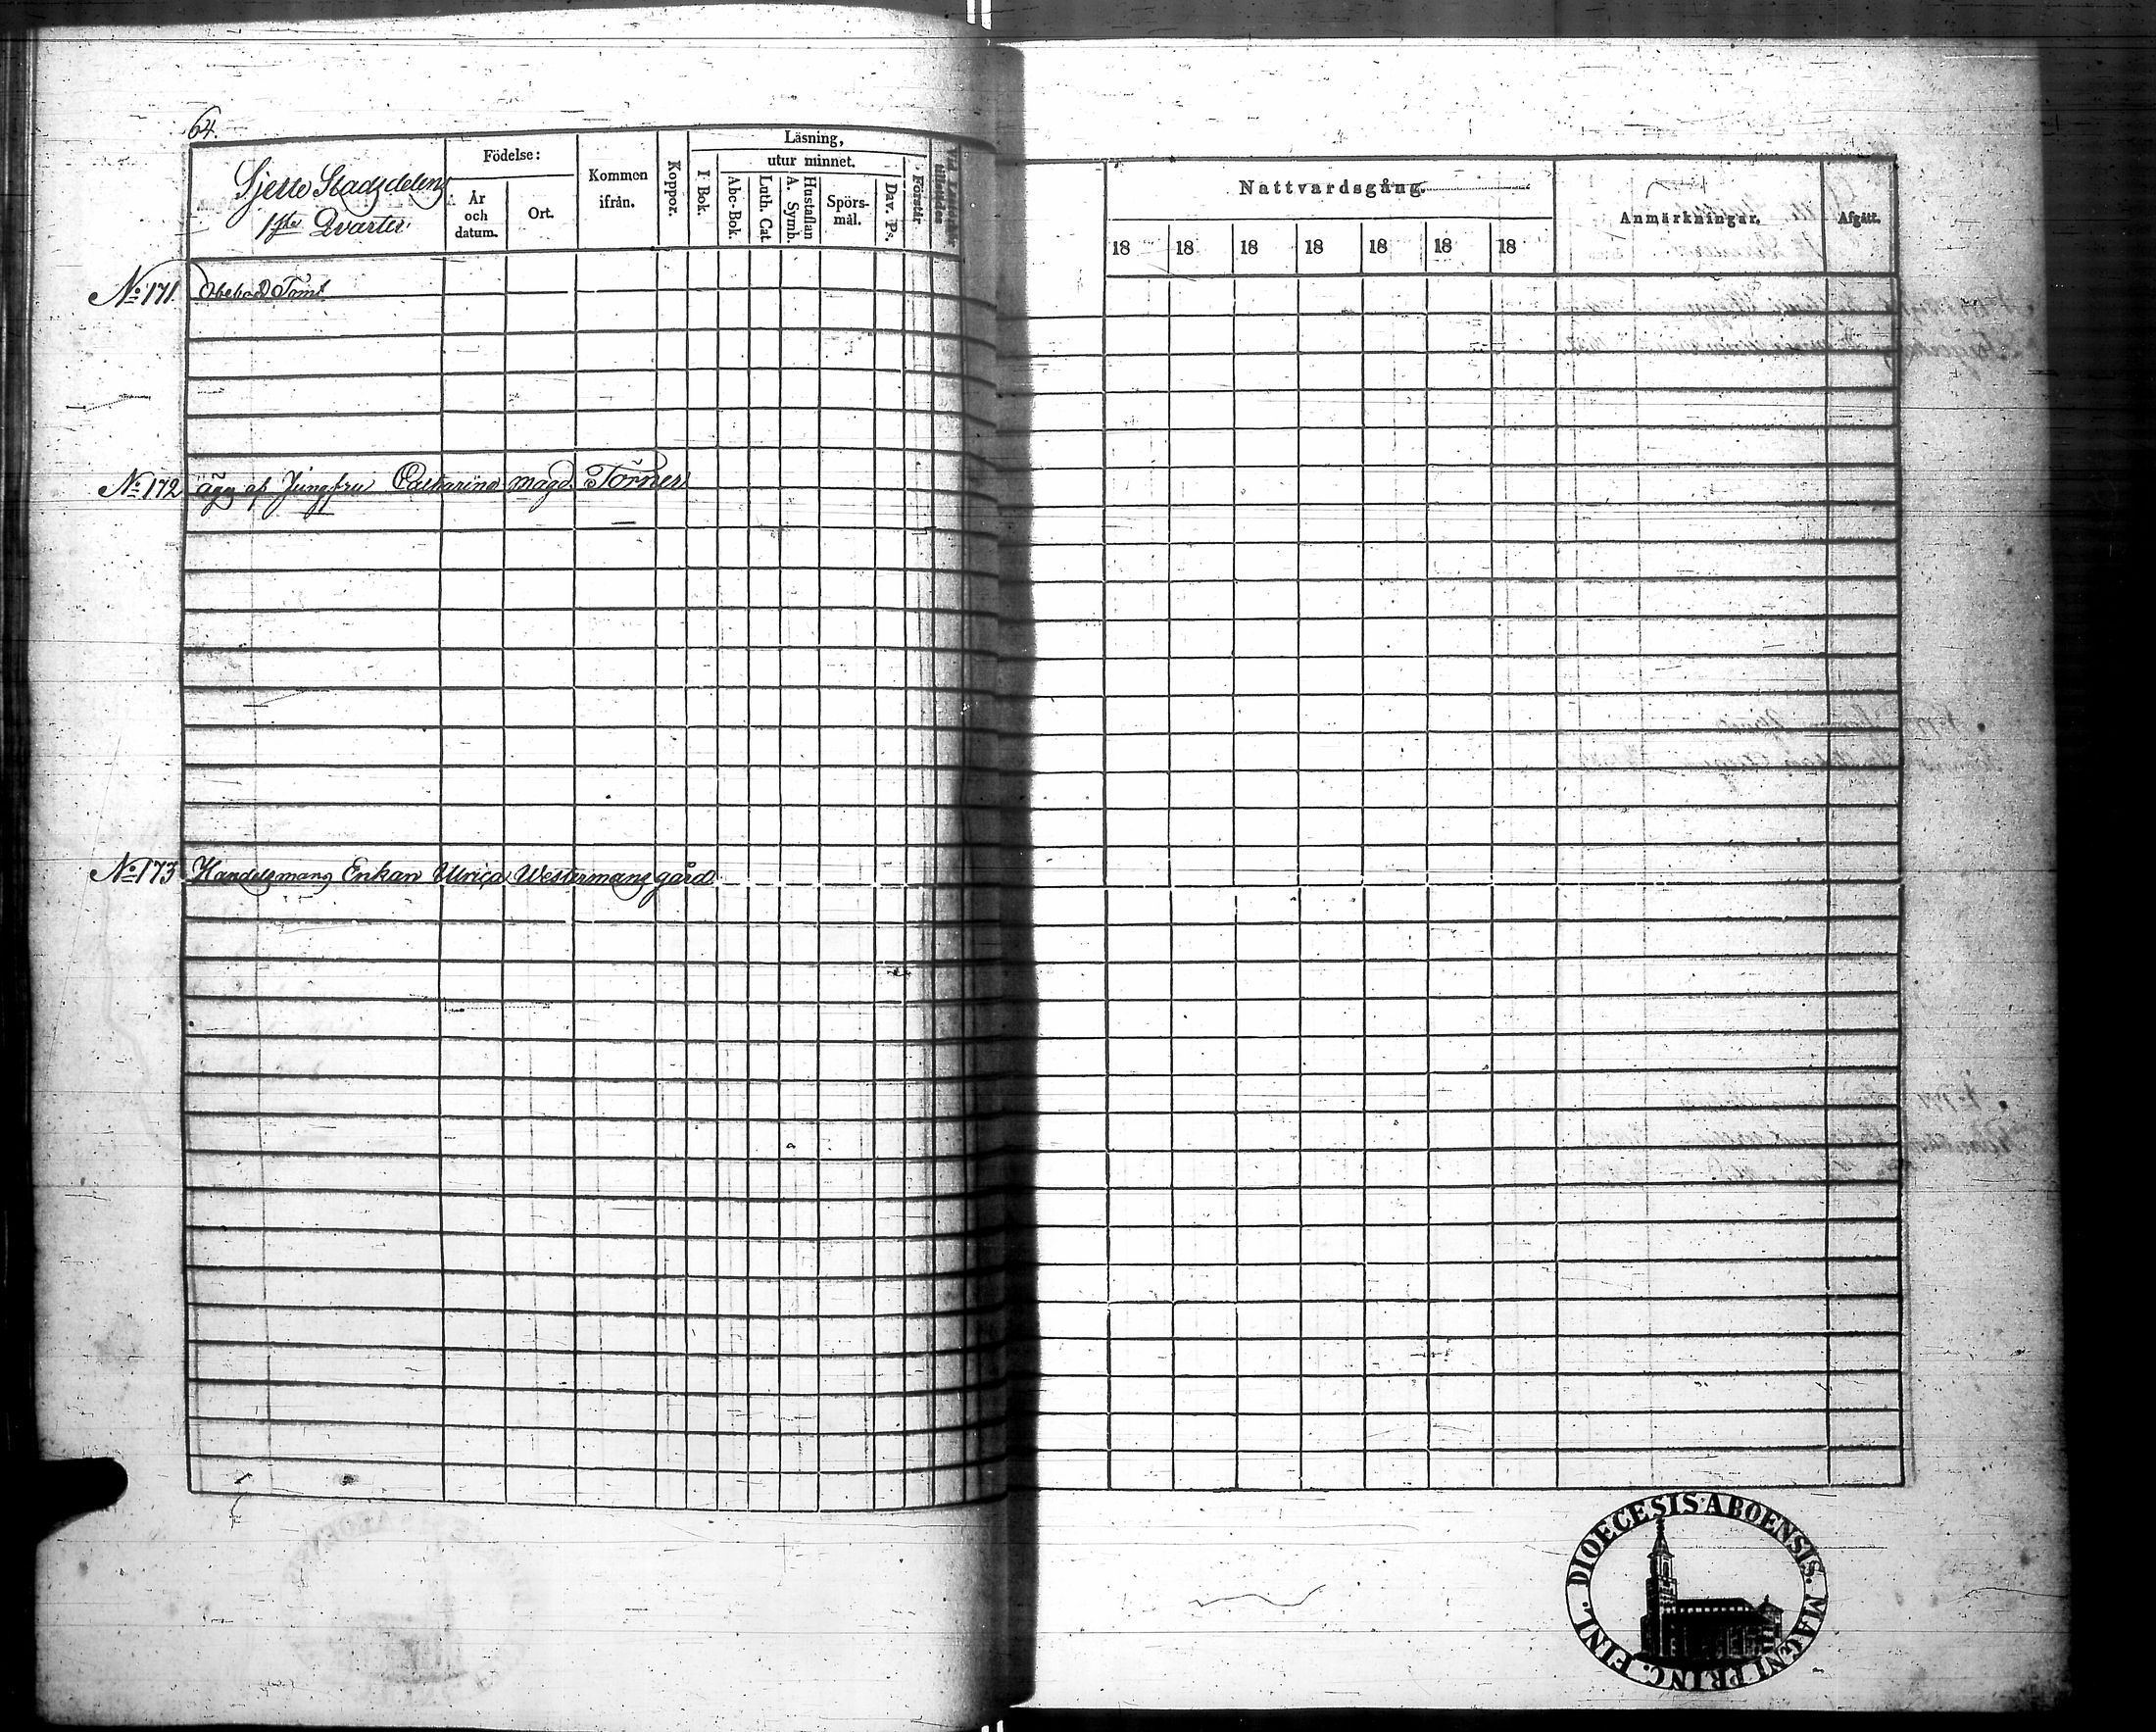 64.
Sjette Stadsdelens
1sta Qvarter.
Födelse:
År
och
datum.
Ort.
Kommen
ifrån.
Koppor.
Läsning,
I Bok.
utur minnet.
Abc-Bok.
Luth. Cat.
Hustaflan
A. Symb.
Spörs-
mål.
Dav. Ps.
Förstår
Nattvardsgång.
18 18 18 18 18 18 18
Anmärkningar.
Afgått.
No 171. Obebodd Tomt
No 172 äges af Jungfru Catharina Magd. Törner
No 173 Handelsmans Enkan Ulrica Westermans gård
DIOECESIS ABOENSIS. MAGNI PRINC. FINL.